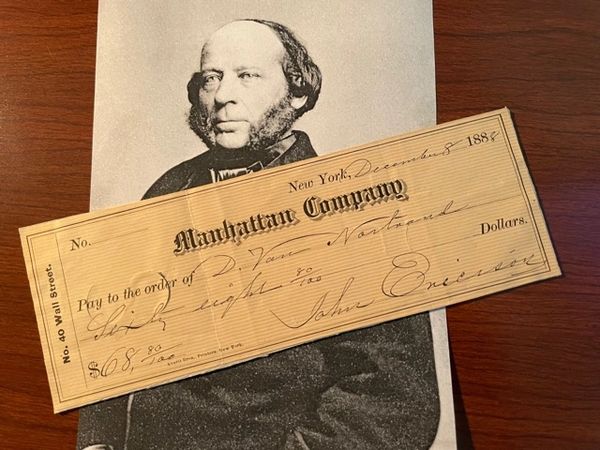 No. 40 Wall Street.
New York, December 8 1888
No.
Manhattan Company
Pay to the order of D. Van Nostrand
Sixty eight 80/100 Dollars.
John Ericsson
$68, 80/100
New York.